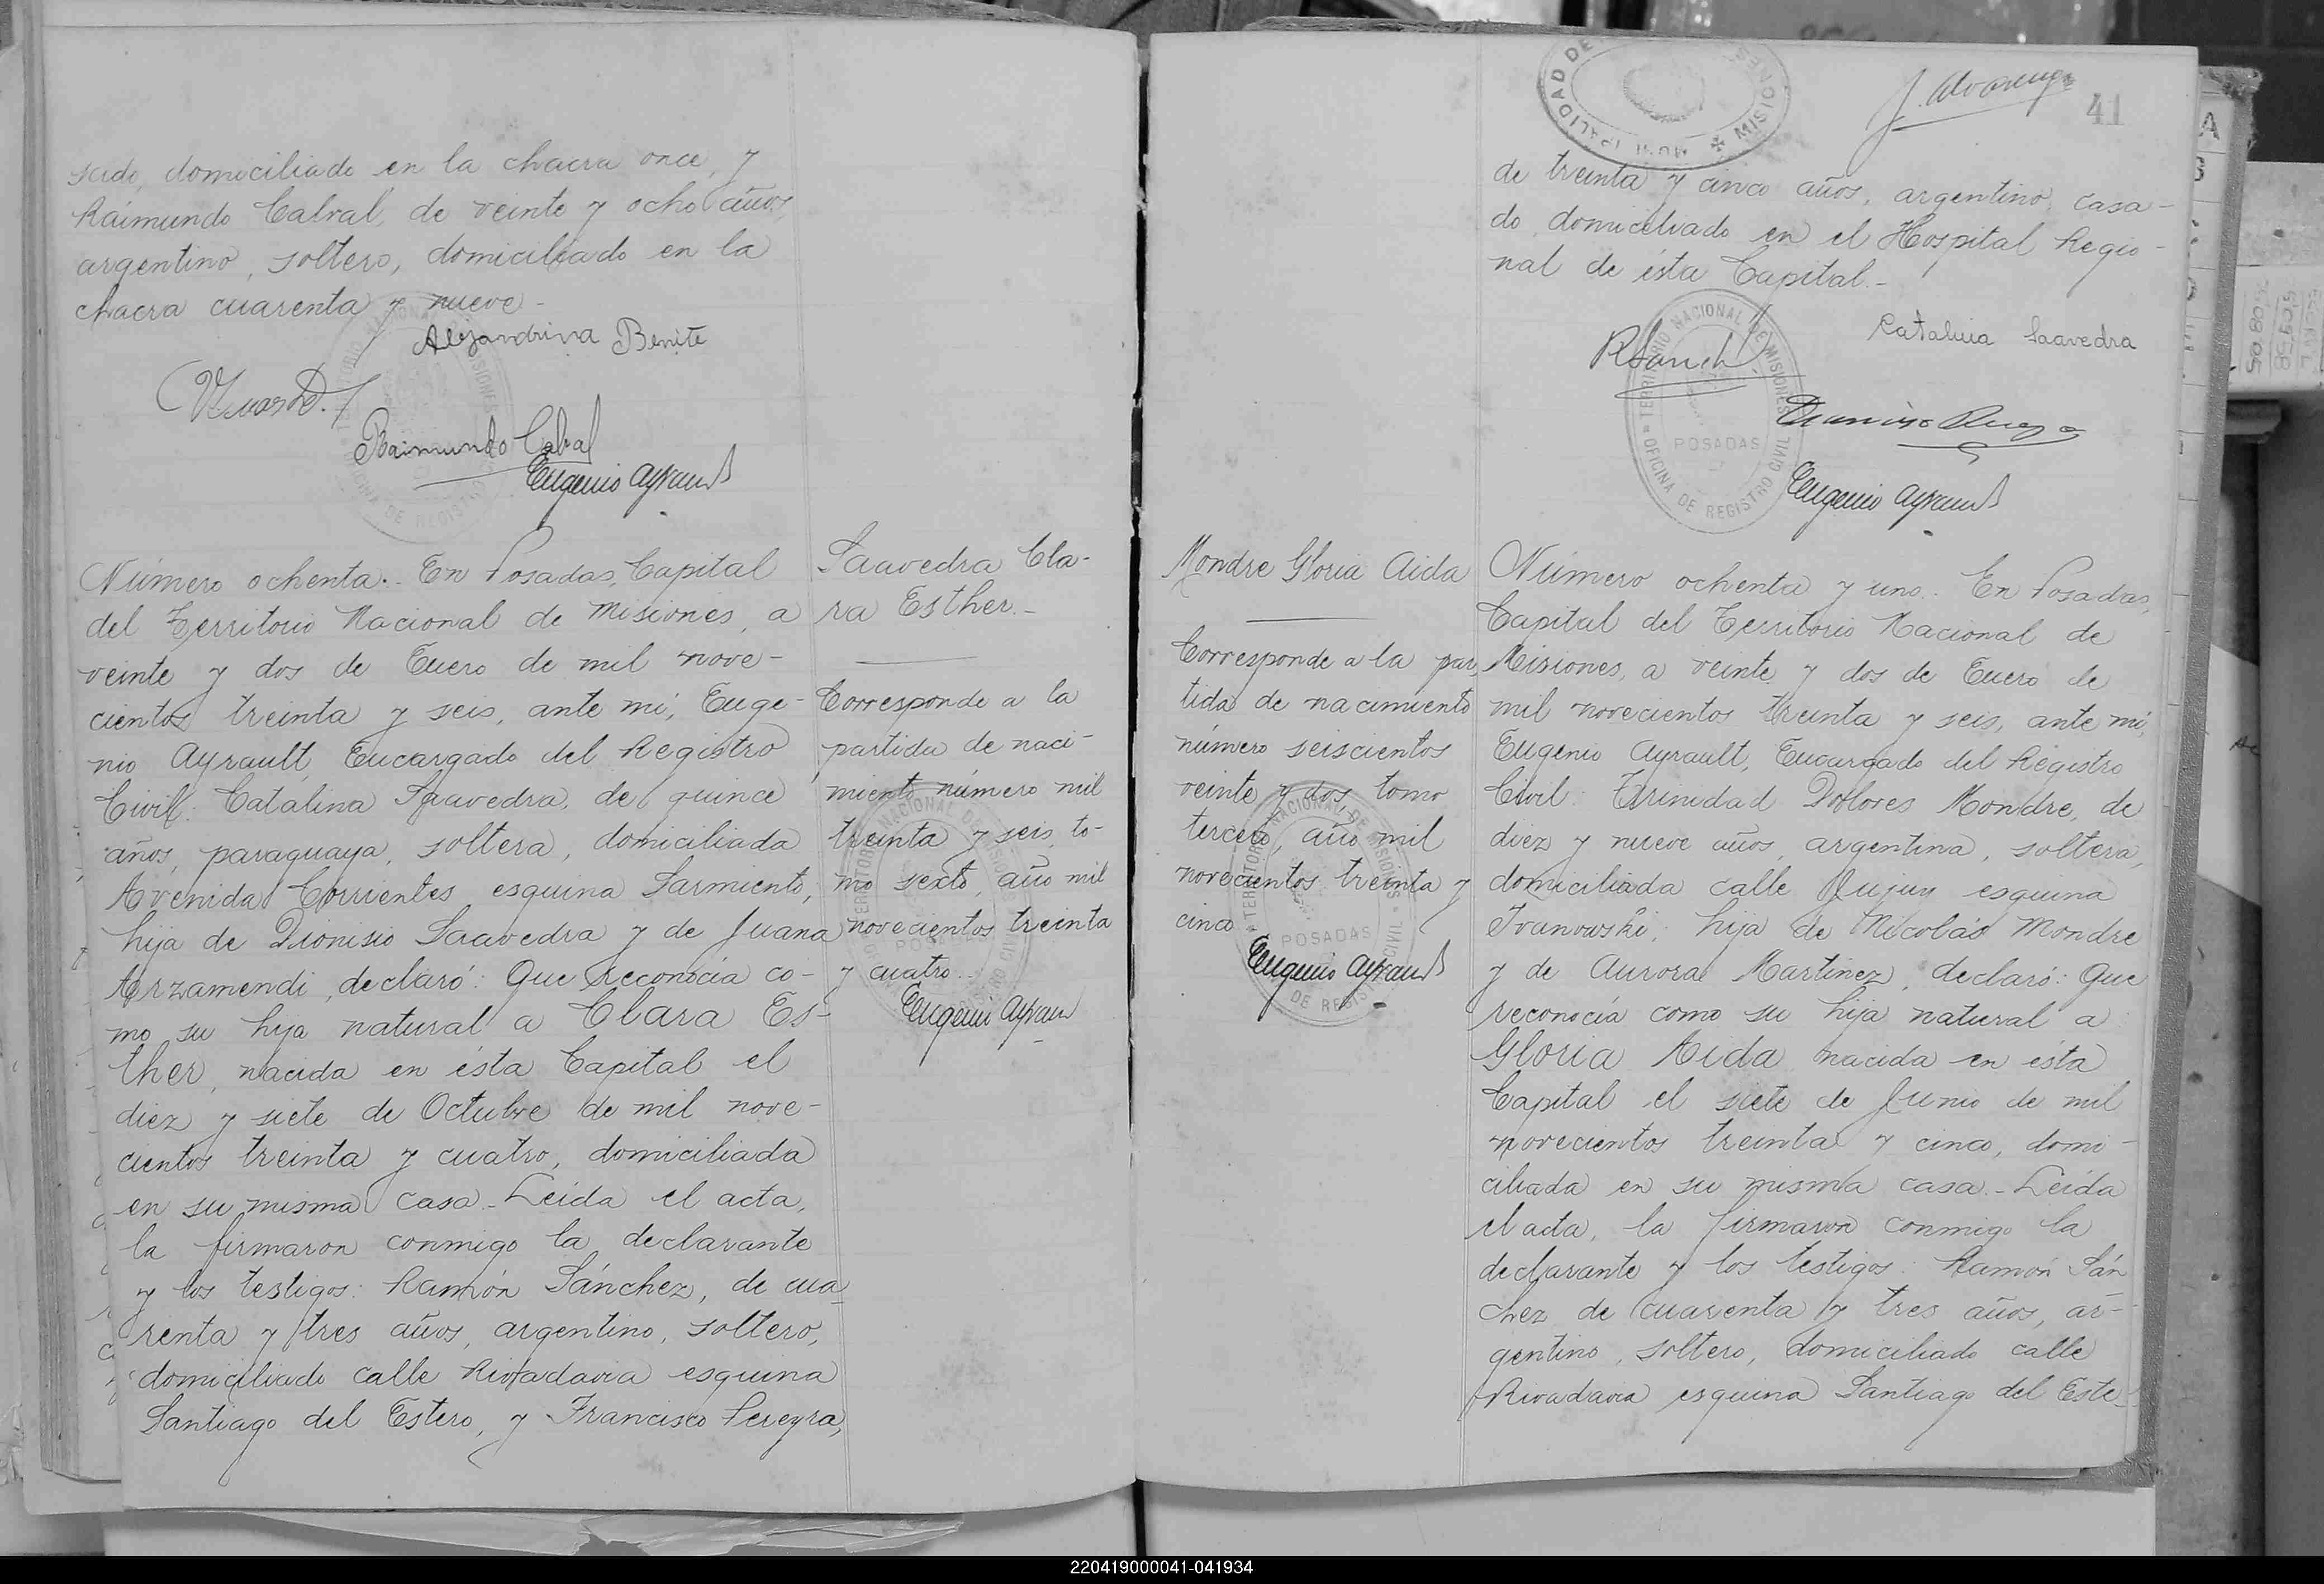 sado, domiciliado en la chacra once, y
Raimundo Cabral, de veinte y ocho años,
argentino, soltero, domiciliado en la
chacra cuarenta y nueve.-
Alejandrina Benite
Raimundo Cabral
Eugenio Ayrault
Número ochenta.- En Posadas, Capital
del Territorio Nacional de Misiones, a
veinte y dos de Enero de mil nove-
cientos treinta y seis, ante mí, Euge-
nio Ayrault, Encargado del Registro
Civil: Catalina Saavedra, de quince
años, paraguaya, soltera, domiciliada
Avenida Corrientes esquina Sarmiento,
hija de Dionisio Saavedra y de Juana
Arzamendi, declaró: Que reconocía co-
mo su hija natural a Clara Es-
ther, nacida en ésta Capital el
diez y siete de Octubre de mil nove-
cientos treinta y cuatro, domiciliada
en su misma casa.- Leída el acta,
la firmaron conmigo la declarante
y los testigos: Ramón Sánchez, de cua-
renta y tres años, argentino, soltero,
domiciliado calle Rivadavia esquina
Santiago del Estero, y Francisco Pereyra,
Saavedra Cla-
ra Esther.-
Corresponde a la
partida de naci-
miento número mil
treinta y seis, to-
mo sexto, año mil
novecientos treinta
y cuatro.-
Eugenio Ayrault
MISIONES
41
de treinta y cinco años, argentino, casa-
do, domiciliado en el Hospital Regio-
nal de ésta Capital.-
Catalina Saavedra
RSanch
TERRITORIO NACIONAL DE MISIONES
POSADAS
OFICINA DE REGISTRO CIVIL
Eugenio Ayrault
Mondre Gloria Aida
Corresponde a la par-
tida de nacimiento
número seiscientos
veinte y dos, tomo
tercero, año mil
novecientos treinta y
cinco
POSADAS
Eugenio Ayrault
Número ochenta y uno.- En Posadas,
Capital del Territorio Nacional de
Misiones, a veinte y dos de Enero de
mil novecientos treinta y seis, ante mí,
Eugenio Ayrault, Encargado del Registro
Civil: Trinidad Dolores Mondre, de
diez y nueve años, argentina, soltera,
domiciliada calle Jujuy esquina
Ivanowski, hija de Nicolás Mondre
y de Aurora Martínez, declaró: Que
reconocía como su hija natural a
Gloria Aida nacida en ésta
Capital el siete de Junio de mil
novecientos treinta y cinco, domi-
ciliada en su misma casa.- Leída
el acta, la firmaron conmigo la
declarante y los testigos: Ramón Sán
chez de cuarenta y tres años, ar-
gentino, soltero, domiciliado calle
Rivadavia esquina Santiago del Este-
220419000041-041934